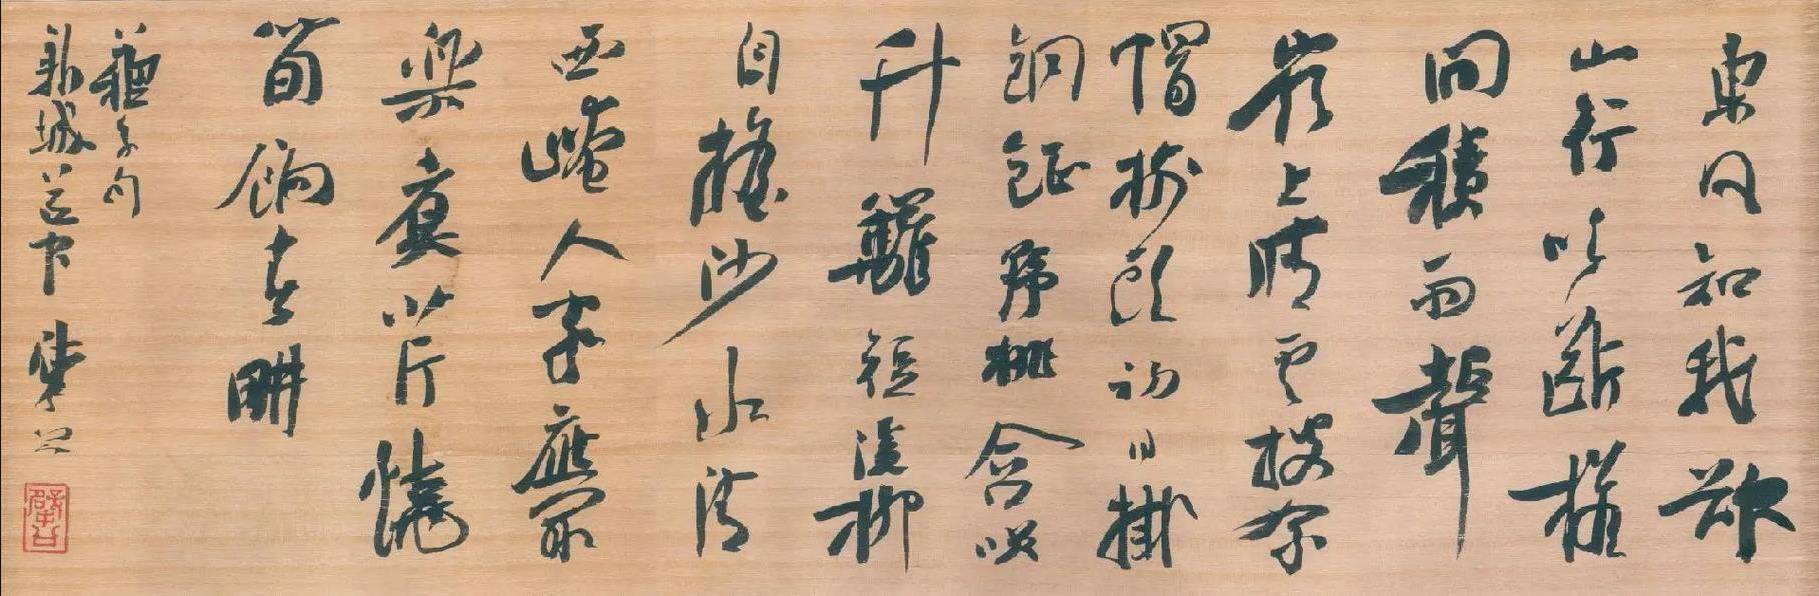 東風知我欲
山行吹斷檐
間積雨聲
嶺上晴雲披絮
帽樹頭初日掛
銅鉦野桃含笑
竹籬短溪柳
自搖沙水清
西崦人家應最
樂煮芹燒
筍餉春耕
蘓子句
新城道中 肇公